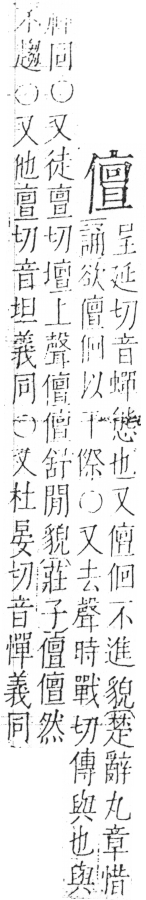 儃
呈延切音蟬態也又儃佪不進貌楚辭九章惜
誦欲儃佪以干傺○又去聲時戰切傳與也與
同○又徒亶切壇上聲儃儃舒閒貌莊子儃儃然
不趨○又他亶切音坦義同○又杜晏切音憚義同